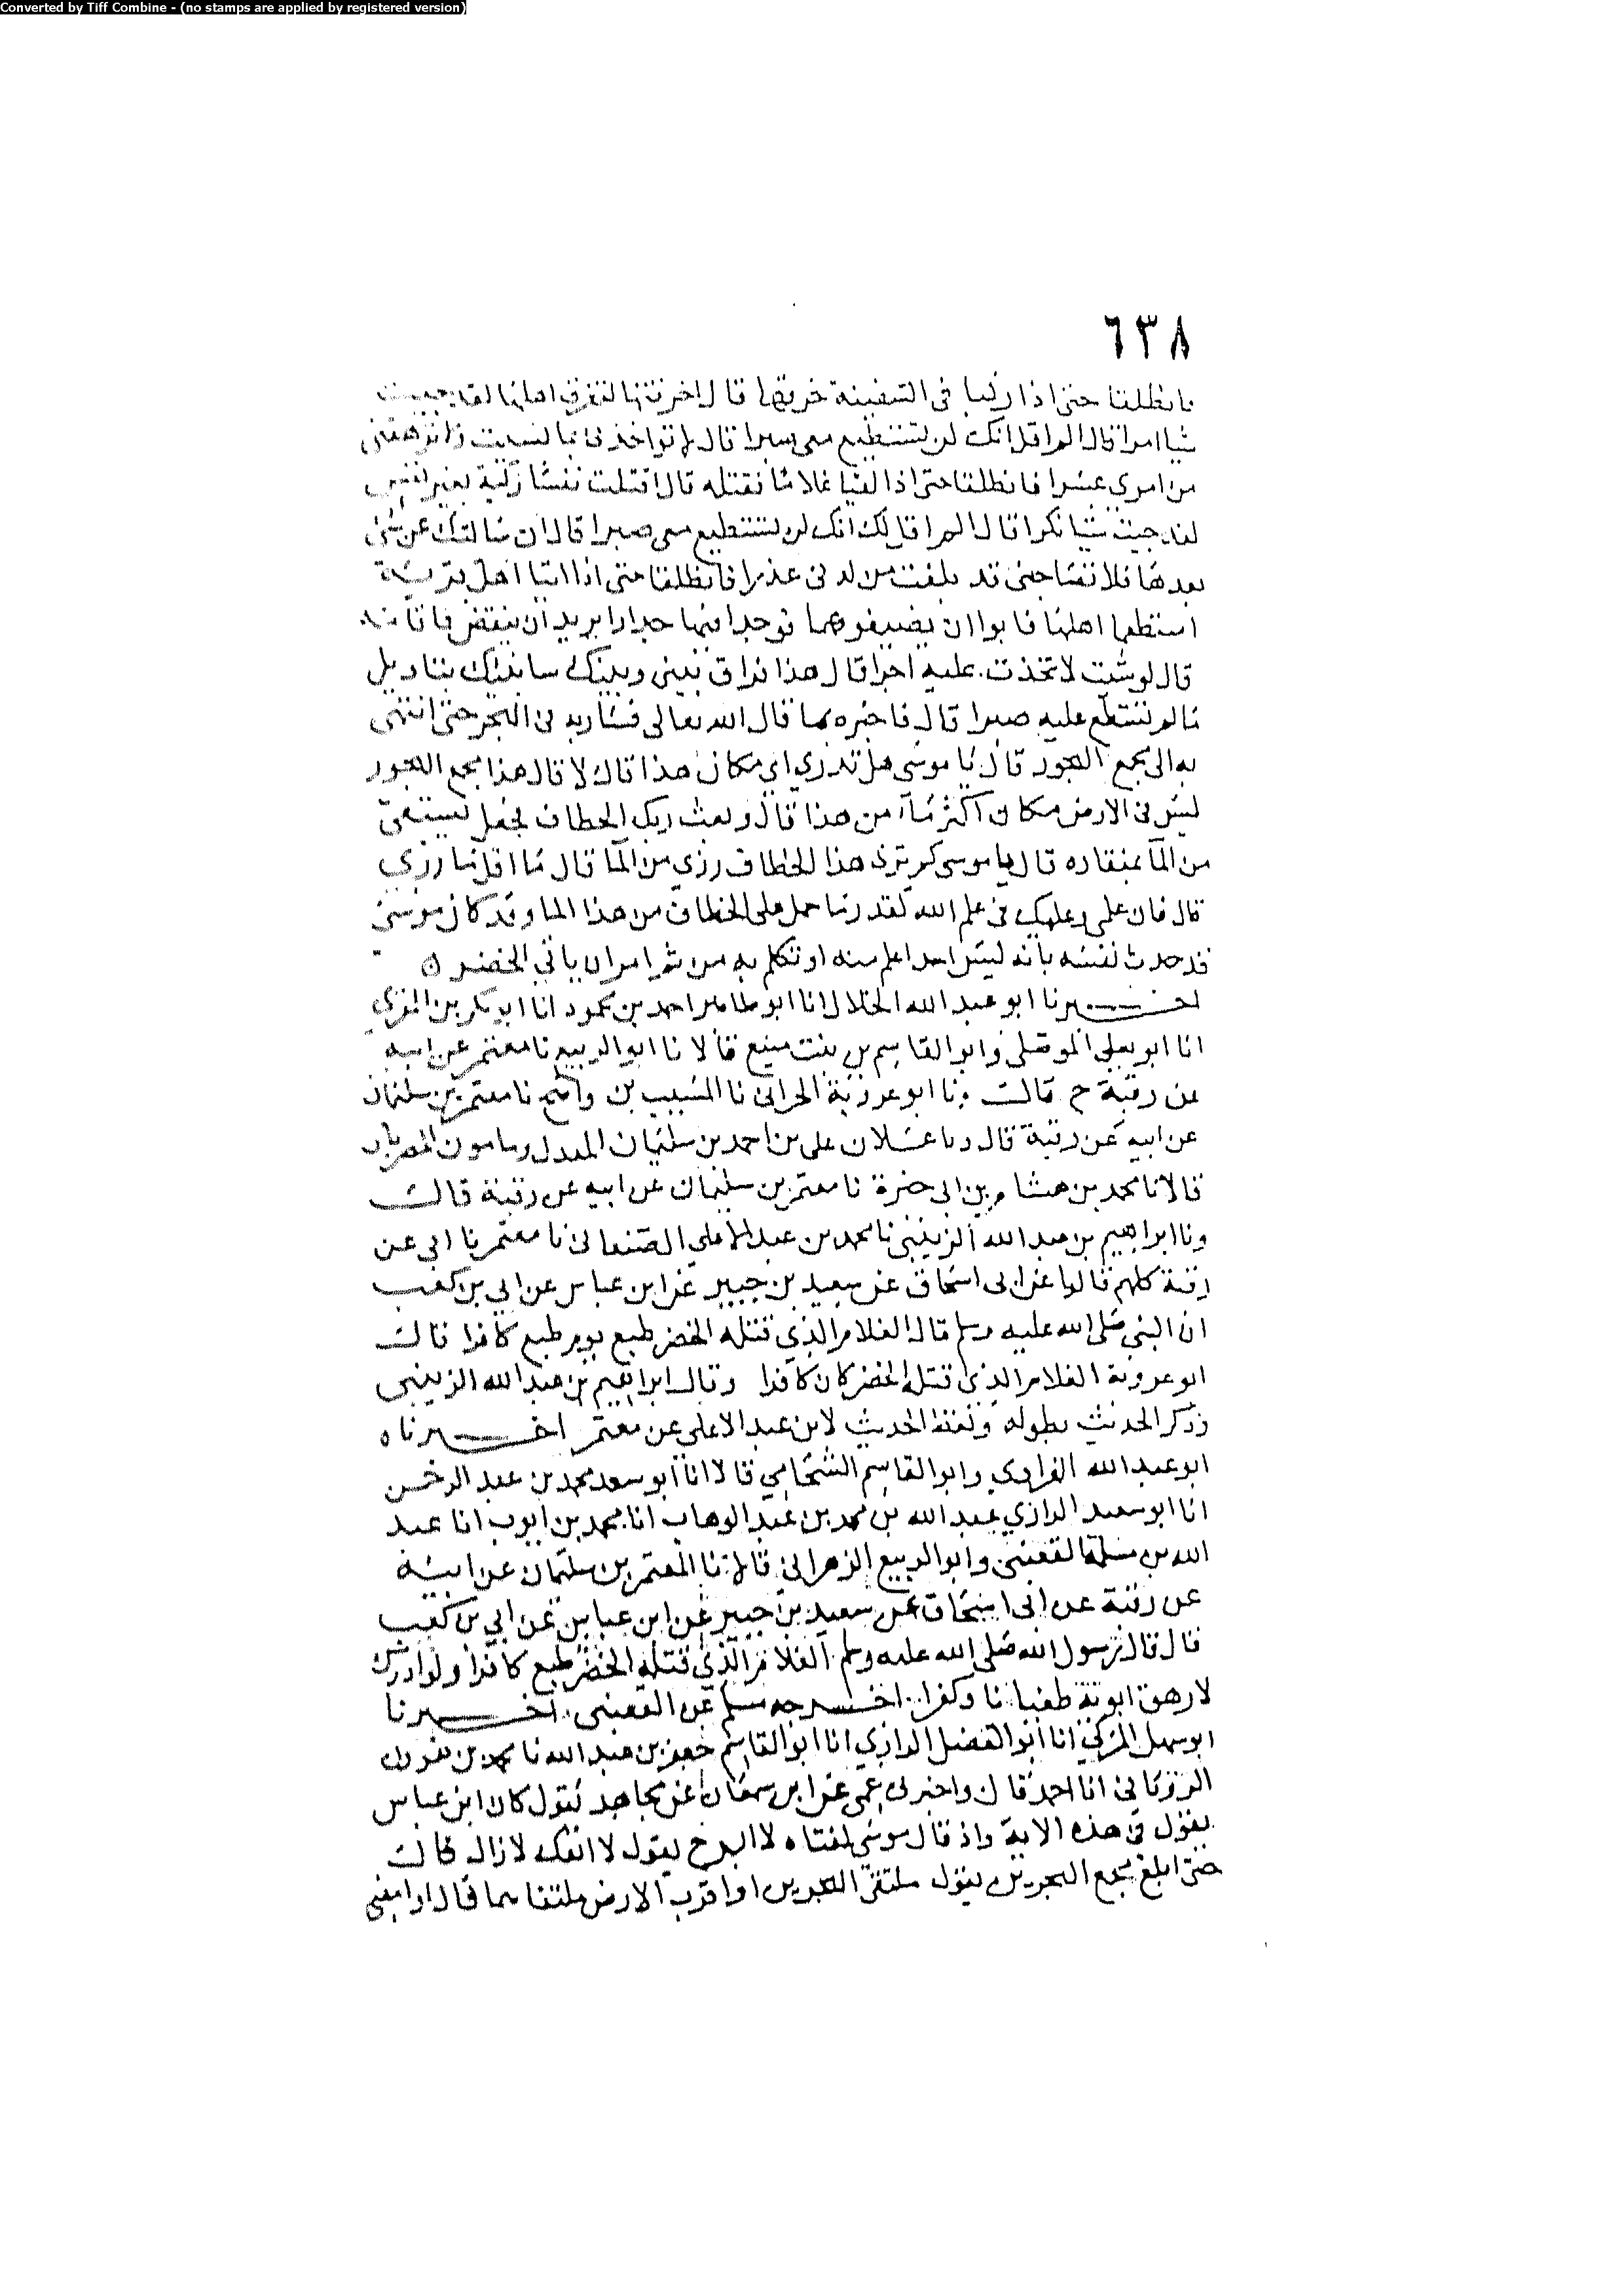 Converted by Tiff Combine - (no stamps are applied by registered version)
٦٣٨
فانطلقا حتى اذا ركبا في السفينة خرقها قال اخرقتها لتغرق اهلها لقد جيت
شيا امرا قال الم اقل انك لن تستطيع معي صبرا قال لا تواخذني بما نسيت ولا ترهقني
من امري عسرا فانطلقا حتى اذا لقيا غلاما فقتله قال اقتلت نفسا زكية بغير نفس
لقد جيت شيا نكرا قال الم اقل لك انك لن تستطيع معي صبرا قال ان سالتك عن شي
بعدها فلا تصاحبني قد بلغت من لدني عذرا فانطلقا حتى اذا اتيا اهل قرية
استطعما اهلها فابوا ان يضيفوهما فوجدا فيها جدارا يريد ان ينقض فاقامه
قال لو شيت لاتخذت عليه اجرا قال هذا فراق بيني وبينك سانبئك بتاويل
ما لم تستطع عليه صبرا قال فاخبره بما قال الله تعالى فسار به في البحر حتى انتهى
به الى مجمع البحور قال يا موسى هل تدري اي مكان هذا قال لا قال هذا مجمع البحور
ليس في الارض مكان اكثر ماء من هذا قال وبعث ربك الخطاف فجعل يستقي
من الما بمنقاره قال يا موسى كم ترى هذا الخطاف رزي من الما قال ما اقل ما رزي
قال فان علمي وعلمك في علم الله كقدر ما حمل هذا الخطاف من هذا الما وقد كان موسى
قد حدث نفسه بانه ليس احد اعلم منه او تكلم به من ثم امر ان ياتي الخضر ه
اخبرنا ابو عبد الله الخلال انا ابو طاهر احمد بن محمود انا ابو بكر بن المقري
انا ابو يعلى الموصلي وابو القاسم بن بنت منيع قالا نا ابو الربيع نا معتمر عن ابيه
عن رقبة ح قال ونا ابو عروبة الحراني نا المسيب بن واضح نا معتمر بن سليمان
عن ابيه عن رقبة قال ونا علان علي بن احمد بن سليمان المعدل ومامون المصريان
قالا نا محمد بن هشام بن ابي خيرة نا معتمر بن سليمان عن ابيه عن رقبة قال
ونا ابراهيم بن عبد الله الزبيبي نا محمد بن عبد الاعلى الصنعاني نا معتمر نا ابي عن
رقبة كلهم قالوا عن ابي اسحاق عن سعيد بن جبير عن ابن عباس عن ابي بن كعب
ان النبي صلى الله عليه وسلم قال الغلام الذي قتله الخضر طبع يوم طبع كافرا قال
ابو عروبة الغلام الذي قتله الخضر كان كافرا وقال ابراهيم بن عبد الله الزبيبي
وذكر الحديث بطوله ولفظ الحديث لابن عبد الاعلى عن معتمر اخبرناه
ابو عبد الله الفراوي وابو القاسم الشحامي قالا انا ابو سعد محمد بن عبد الرحمن
انا ابو سعيد الرازي عبد الله بن محمد بن عبد الوهاب انا محمد بن ايوب انا عبد
الله بن مسلمة القعنبي وابو الربيع الزهراني قالا نا المعتمر بن سليمان عن ابيه
عن رقبة عن ابي اسحاق عن سعيد بن جبير عن ابن عباس عن ابي بن كعب
قال قال رسول الله صلى الله عليه وسلم الغلام الذي قتله الخضر طبع كافرا ولو ادرك
لارهق ابويه طغيانا وكفرا اخرجه مسلم عن القعنبي اخبرنا
ابو سهل المزكي انا ابو الفضل الرازي انا ابو القاسم جعفر بن عبد الله نا محمد بن هرون
الروياني انا احمد قال واخبرني عمي عن ابن سمعان عن مجاهد يقول كان ابن عباس
يقول في هذه الاية واذ قال موسى لفتاه لا ابرح يقول لا انفك لا ازال قال
حتى ابلغ مجمع البحرين يقول ملتقى البحرين اوا قرب الارض ملتقاهما قال او امضي